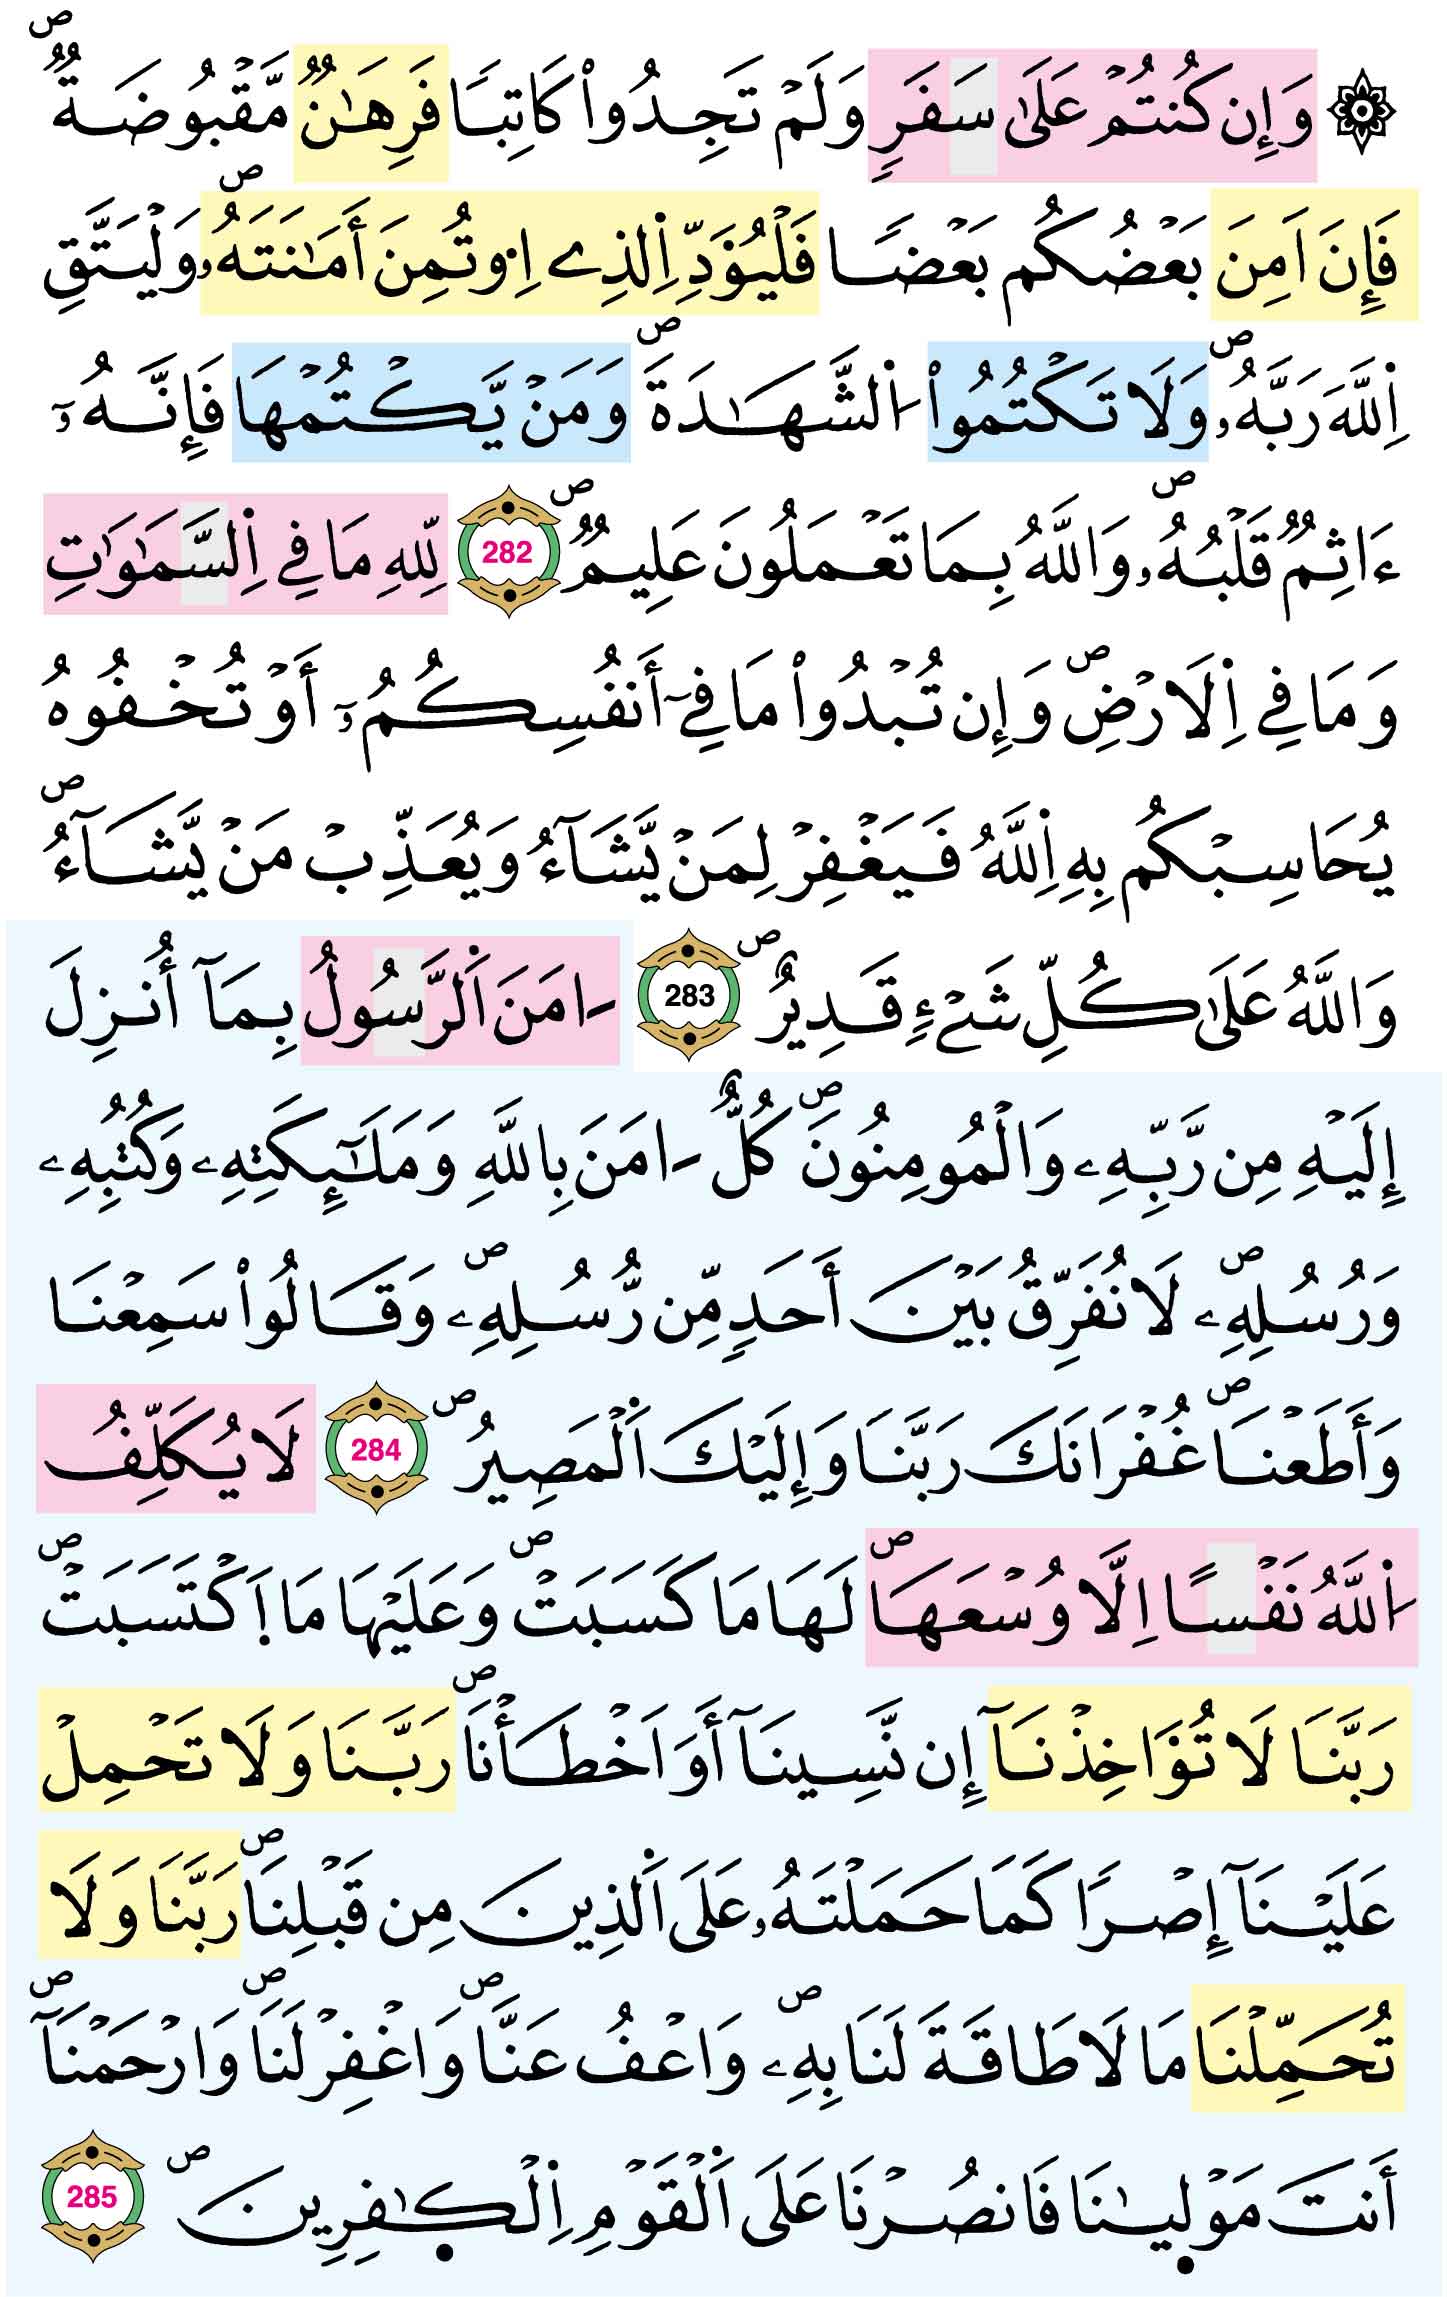 ۞ وَإِن كُنتُمْ عَلَىٰ سَفَرٖ وَلَمْ تَجِدُواْ كَاتِبٗا فَرِهَٰنٞ مَّقْبُوضَةٞۖ
فَإِنَ اَمِنَ بَعْضُكُم بَعْضٗا فَلْيُؤَدِّ اِ۬لذِے اِ۟وتُمِنَ أَمَٰنَتَهُۥۖ وَلْيَتَّقِ
اِ۬للَّهَ رَبَّهُۥۖ وَلَا تَكْتُمُواْ اُ۬لشَّهَٰدَةَۖ وَمَنْ يَّكْتُمْهَا فَإِنَّهُۥٓ
ءَاثِمٞ قَلْبُهُۥۖ وَاللَّهُ بِمَا تَعْمَلُونَ عَلِيمٞۖ 282 لِّلهِ مَا فِي اِ۬لسَّمَٰوَٰتِ
وَمَا فِي اِ۬لَارْضِۖ وَإِن تُبْدُواْ مَا فِيٓ أَنفُسِكُمُۥٓ أَوْ تُخْفُوهُ
يُحَاسِبْكُم بِهِ اِ۬للَّهُ فَيَغْفِرْ لِمَنْ يَّشَآءُ وَيُعَذِّبْ مَنْ يَّشَآءُۖ
وَاللَّهُ عَلَىٰ كُلِّ شَےْءٖ قَدِيرٌۖ 283 اٰمَنَ اَ۬لرَّسُولُ بِمَآ أُنزِلَ
إِلَيْهِ مِن رَّبِّهِۦ وَالْمُومِنُونَۖ كُلٌّ اٰمَنَ بِاللَّهِ وَمَلَٰٓئِكَتِهِۦ وَكُتُبِهِۦ
وَرُسُلِهِۦۖ لَا نُفَرِّقُ بَيْنَ أَحَدٖ مِّن رُّسُلِهِۦۖ وَقَالُواْ سَمِعْنَا
وَأَطَعْنَاۖ غُفْرَانَكَ رَبَّنَا وَإِلَيْكَ اَ۬لْمَصِيرُۖ 284 لَا يُكَلِّفُ
اُ۬للَّهُ نَفْسًا اِلَّا وُسْعَهَاۖ لَهَا مَا كَسَبَتْۖ وَعَلَيْهَا مَا اَ۪كْتَسَبَتْۖ
رَبَّنَا لَا تُؤَاخِذْنَآ إِن نَّسِينَآ أَوَ اَخْطَأْنَاۖ رَبَّنَا وَلَا تَحْمِلْ
عَلَيْنَآ إِصْرٗا كَمَا حَمَلْتَهُۥ عَلَى اَ۬لذِينَ مِن قَبْلِنَاۖ رَبَّنَا وَلَا
تُحَمِّلْنَا مَا لَا طَاقَةَ لَنَا بِهِۦۖ وَاعْفُ عَنَّاۖ وَاغْفِرْ لَنَاۖ وَارْحَمْنَآۖ
أَنتَ مَوْل۪يٰنَا فَانصُرْنَا عَلَى اَ۬لْقَوْمِ اِ۬لْكٰ۪فِرِينَۖ 285